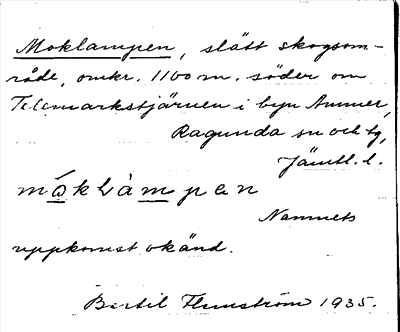 Moklampen, slätt skogsom-
råde, omkr. 1100 m. söder om
Telemarkstjärnen i byn Ammer,
Ragunda sn och tg,
Jämtl. l.
mo̊klàmpen
Namnets
uppkomst okänd.
Bertil Flemström 1935.